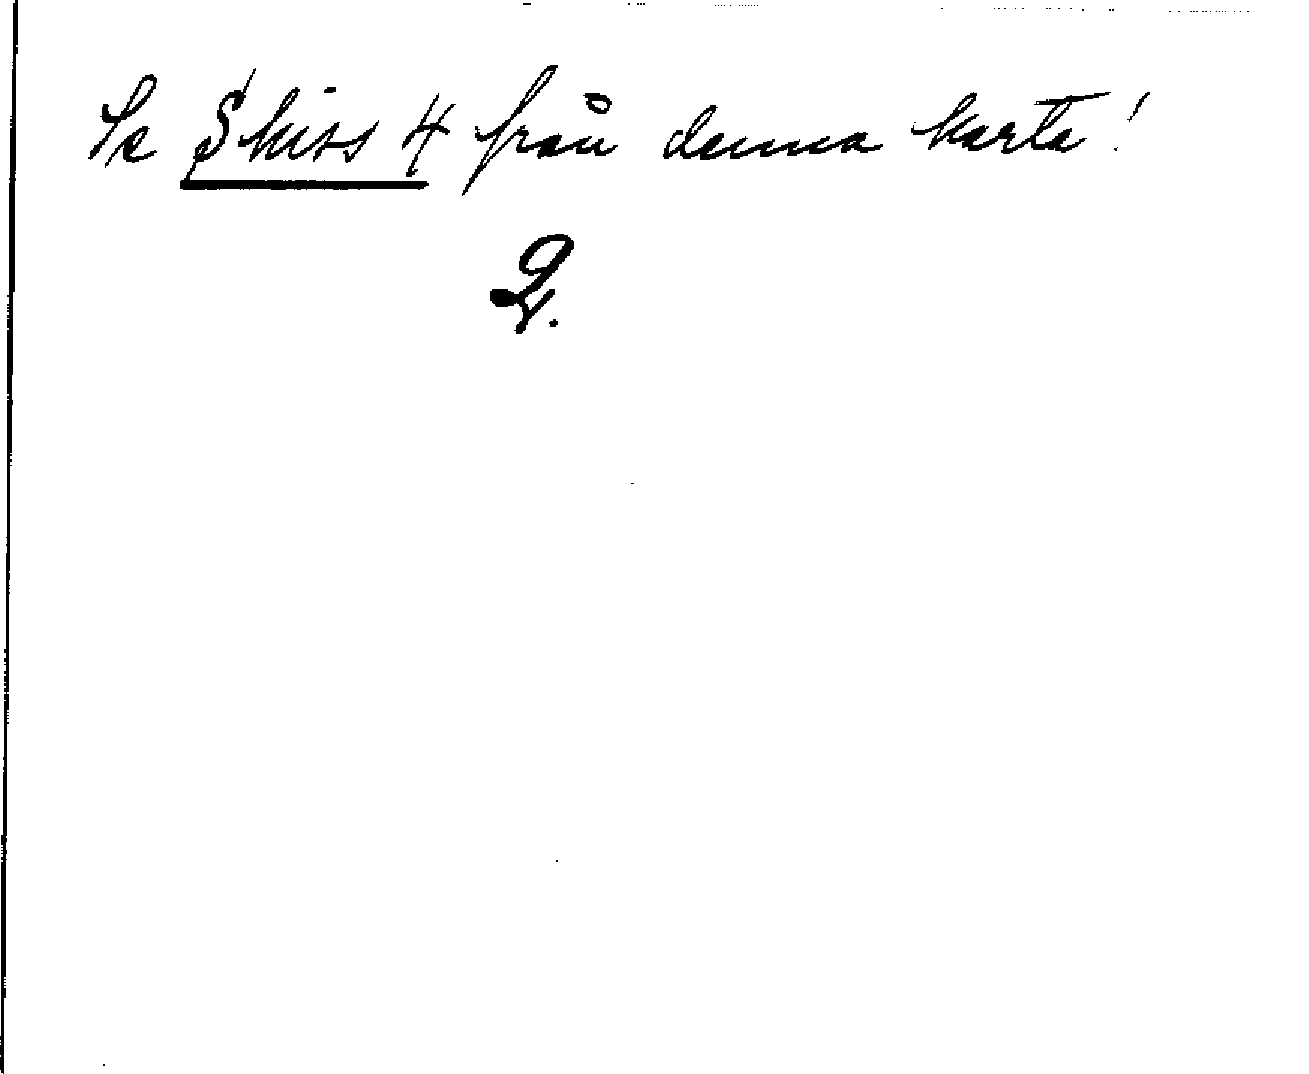 Se Skiss 4 från denna karta!
2.